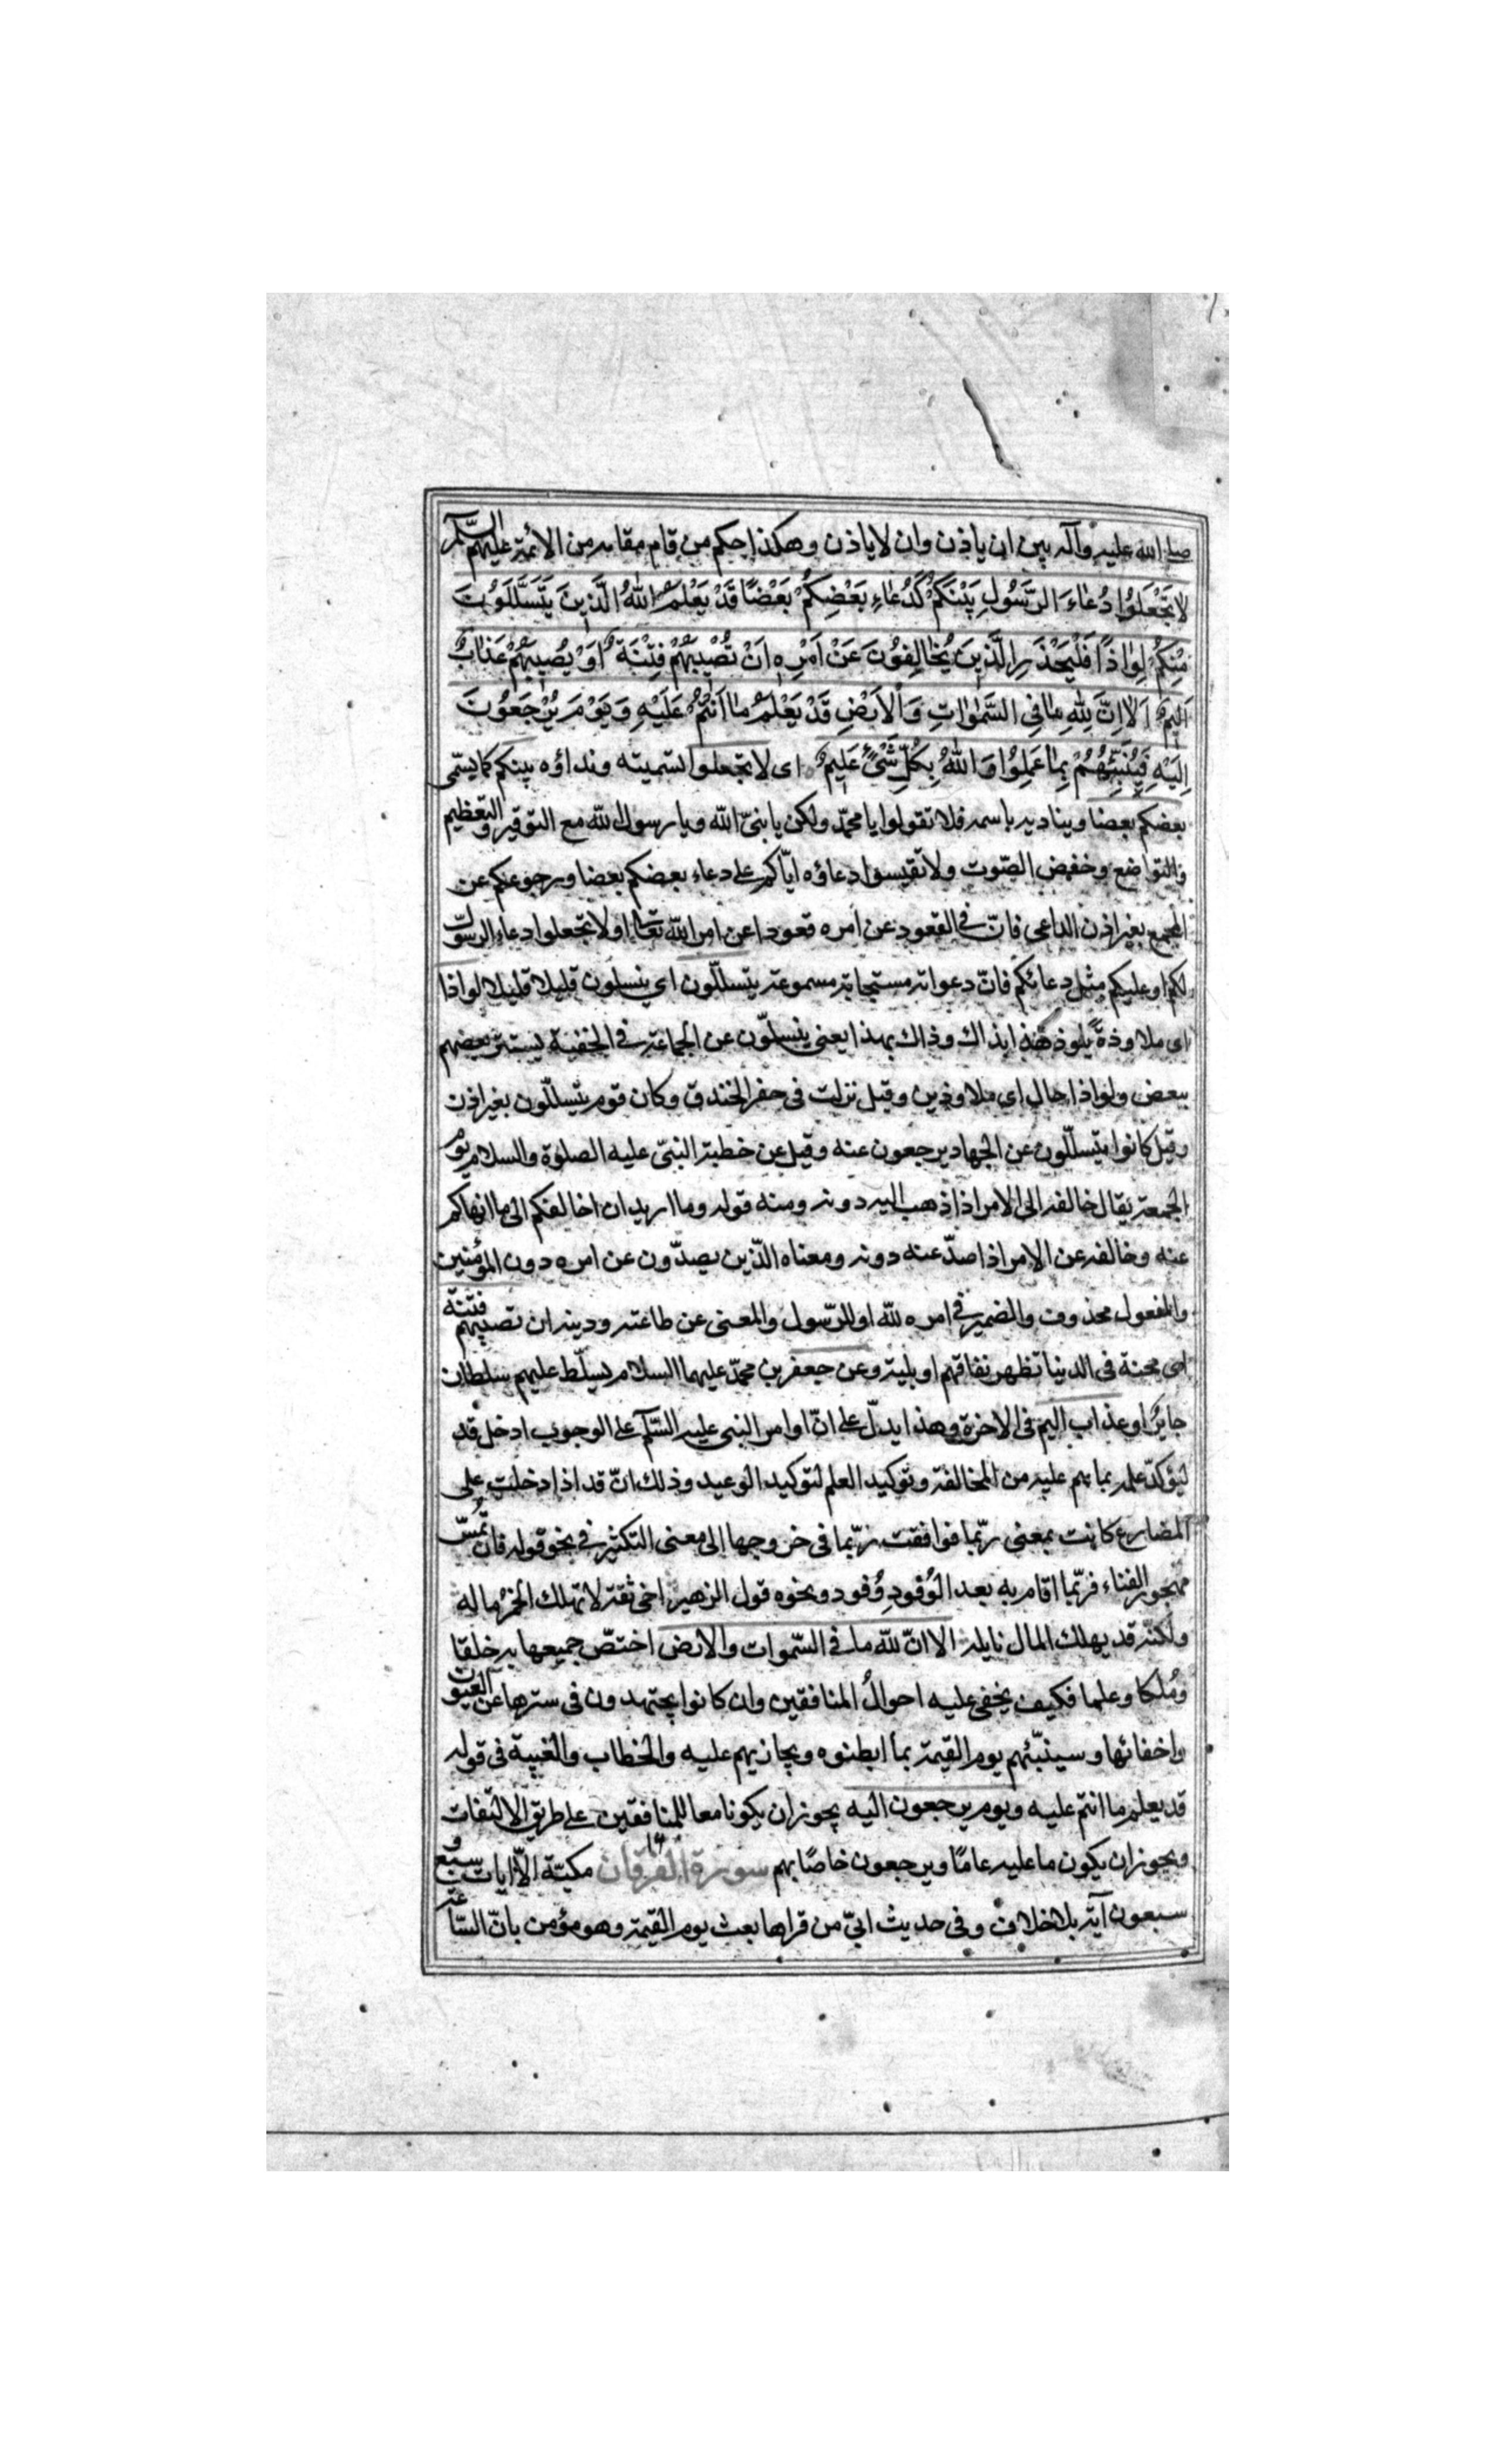 صلى الله عليه وآله بين ان ياذن وان لا ياذن وهكذا حكم من قام مقامه من الائمة عليهم السلم
لَا تَجْعَلُوا دُعَاءَ الرَّسُولِ بَيْنَكُمْ كَدُعَاءِ بَعْضِكُمْ بَعْضًا قَدْ يَعْلَمُ اللهُ الَّذِينَ يَتَسَلَّلُونَ
مِنْكُمْ لِوَاذًا فَلْيَحْذَرِ الَّذِينَ يُخَالِفُونَ عَنْ اَمْرِهِ اَنْ تُصِيبَهُمْ فِتْنَةٌ اَوْ يُصِيبَهُمْ عَذَابٌ
اَلِيمٌ اَلَا اِنَّ لِلّٰهِ مَا فِي السَّمٰوَاتِ وَالْاَرْضِ قَدْ يَعْلَمُ مَا اَنْتُمْ عَلَيْهِ وَيَوْمَ يُرْجَعُونَ
اِلَيْهِ فَيُنَبِّئُهُمْ بِمَا عَمِلُوا وَاللهُ بِكُلِّ شَيْءٍ عَلِيمٌ اى لا تجعلوا تسميته ونداؤه بينكم كما يسمّى
بعضكم بعضا ويناديه باسمه فلا تقولوا يا محمّد ولكن يا نبىّ الله ويا رسول الله مع التوقير والتعظيم
والتواضع وخفض الصّوت ولا تقيسوا دعاؤه ايّاكم على دعاء بعضكم بعضا ورجوعكم عن
المجمع بغير اذن الداعى فانّ فى القعود عن امره قعودا عن امر الله تعالى او لا تجعلوا دعاء الرسول
لكم او عليكم مثل دعائكم فانّ دعواته مستجابة مسموعة يتسلّلون اى ينسلون قليلا قليلا لواذا
اى ملاوذة يلوذ هذا بذاك وذاك بهذا يعنى ينسلّون عن الجماعة فى الخفية يستتر بعضهم
ببعض ولواذا حال اى ملاوذين وقيل نزلت فى حفر الخندق وكان قوم يتسلّلون بغير اذن
وقيل كانوا يتسلّلون عن الجهاد يرجعون عنه وقيل عن خطبة النبىّ عليه الصلوة والسلام يوم
الجمعة يقال خالفه الى الامر اذا ذهب اليه دونه ومنه قوله وما اريد ان اخالفكم الى ما انهاكم
عنه وخالفه عن الامر اذا صدّ عنه دونه ومعناه الذّين يصدّون عن امره دون المؤمنين
والمفعول محذوف والضمير فى امره لله او للرّسول والمعنى عن طاعته ودينه ان تصيبهم فتنة
اى محنة فى الدنيا تظهر نفاقهم او بلية وعن جعفر بن محمّد عليهما السلام يسلّط عليهم سلطان
جاير او عذاب اليم فى الاخرة وهذا يدلّ على انّ اوامر النبى عليه السّلم على الوجوب ادخل قد
ليؤكدّ علمه بما هم عليه من المخالفة وتوكيد العلم لتوكيد الوعيد وذلك انّ قد اذا دخلت على
المضارع كانت بمعنى ربّما فوافقت ربّما فى خروجها الى معنى التكثير فى نحو قوله فان تمس
مهجور الفناء فربّما اقام به بعد الوُفودِ وُفود ونحوه قول الزهير اخى ثقة لا تهلك الخمرُ ماله
ولكنّه قد يهلك المال نايله الا انّ لله ما فى السّموات والارض اختصّ جميعها به خلقا
ومُلكا وعلما فكيف يخفى عليه احوالُ المنافقين وان كانوا يجتهدون فى سترها عن العيون
واخفائها وسينبّئهم يوم القيمة بما ابطنوه ويجازيهم عليه والخطاب والغيبة فى قوله
قد يعلم ما انتم عليه ويوم يرجعون اليه يجوز ان يكونا معا للمنافقين على طريق الالتفات
ويجوز ان يكون ما عليه عامًا ويرجعون خاصًا بهم سورة الفرقان مكيّة الّا ايات سبع و
سبعون آية بلا خلاف وفى حديث ابىّ من قراها بعث يوم القيمة وهو مؤمن بانّ السّاعة